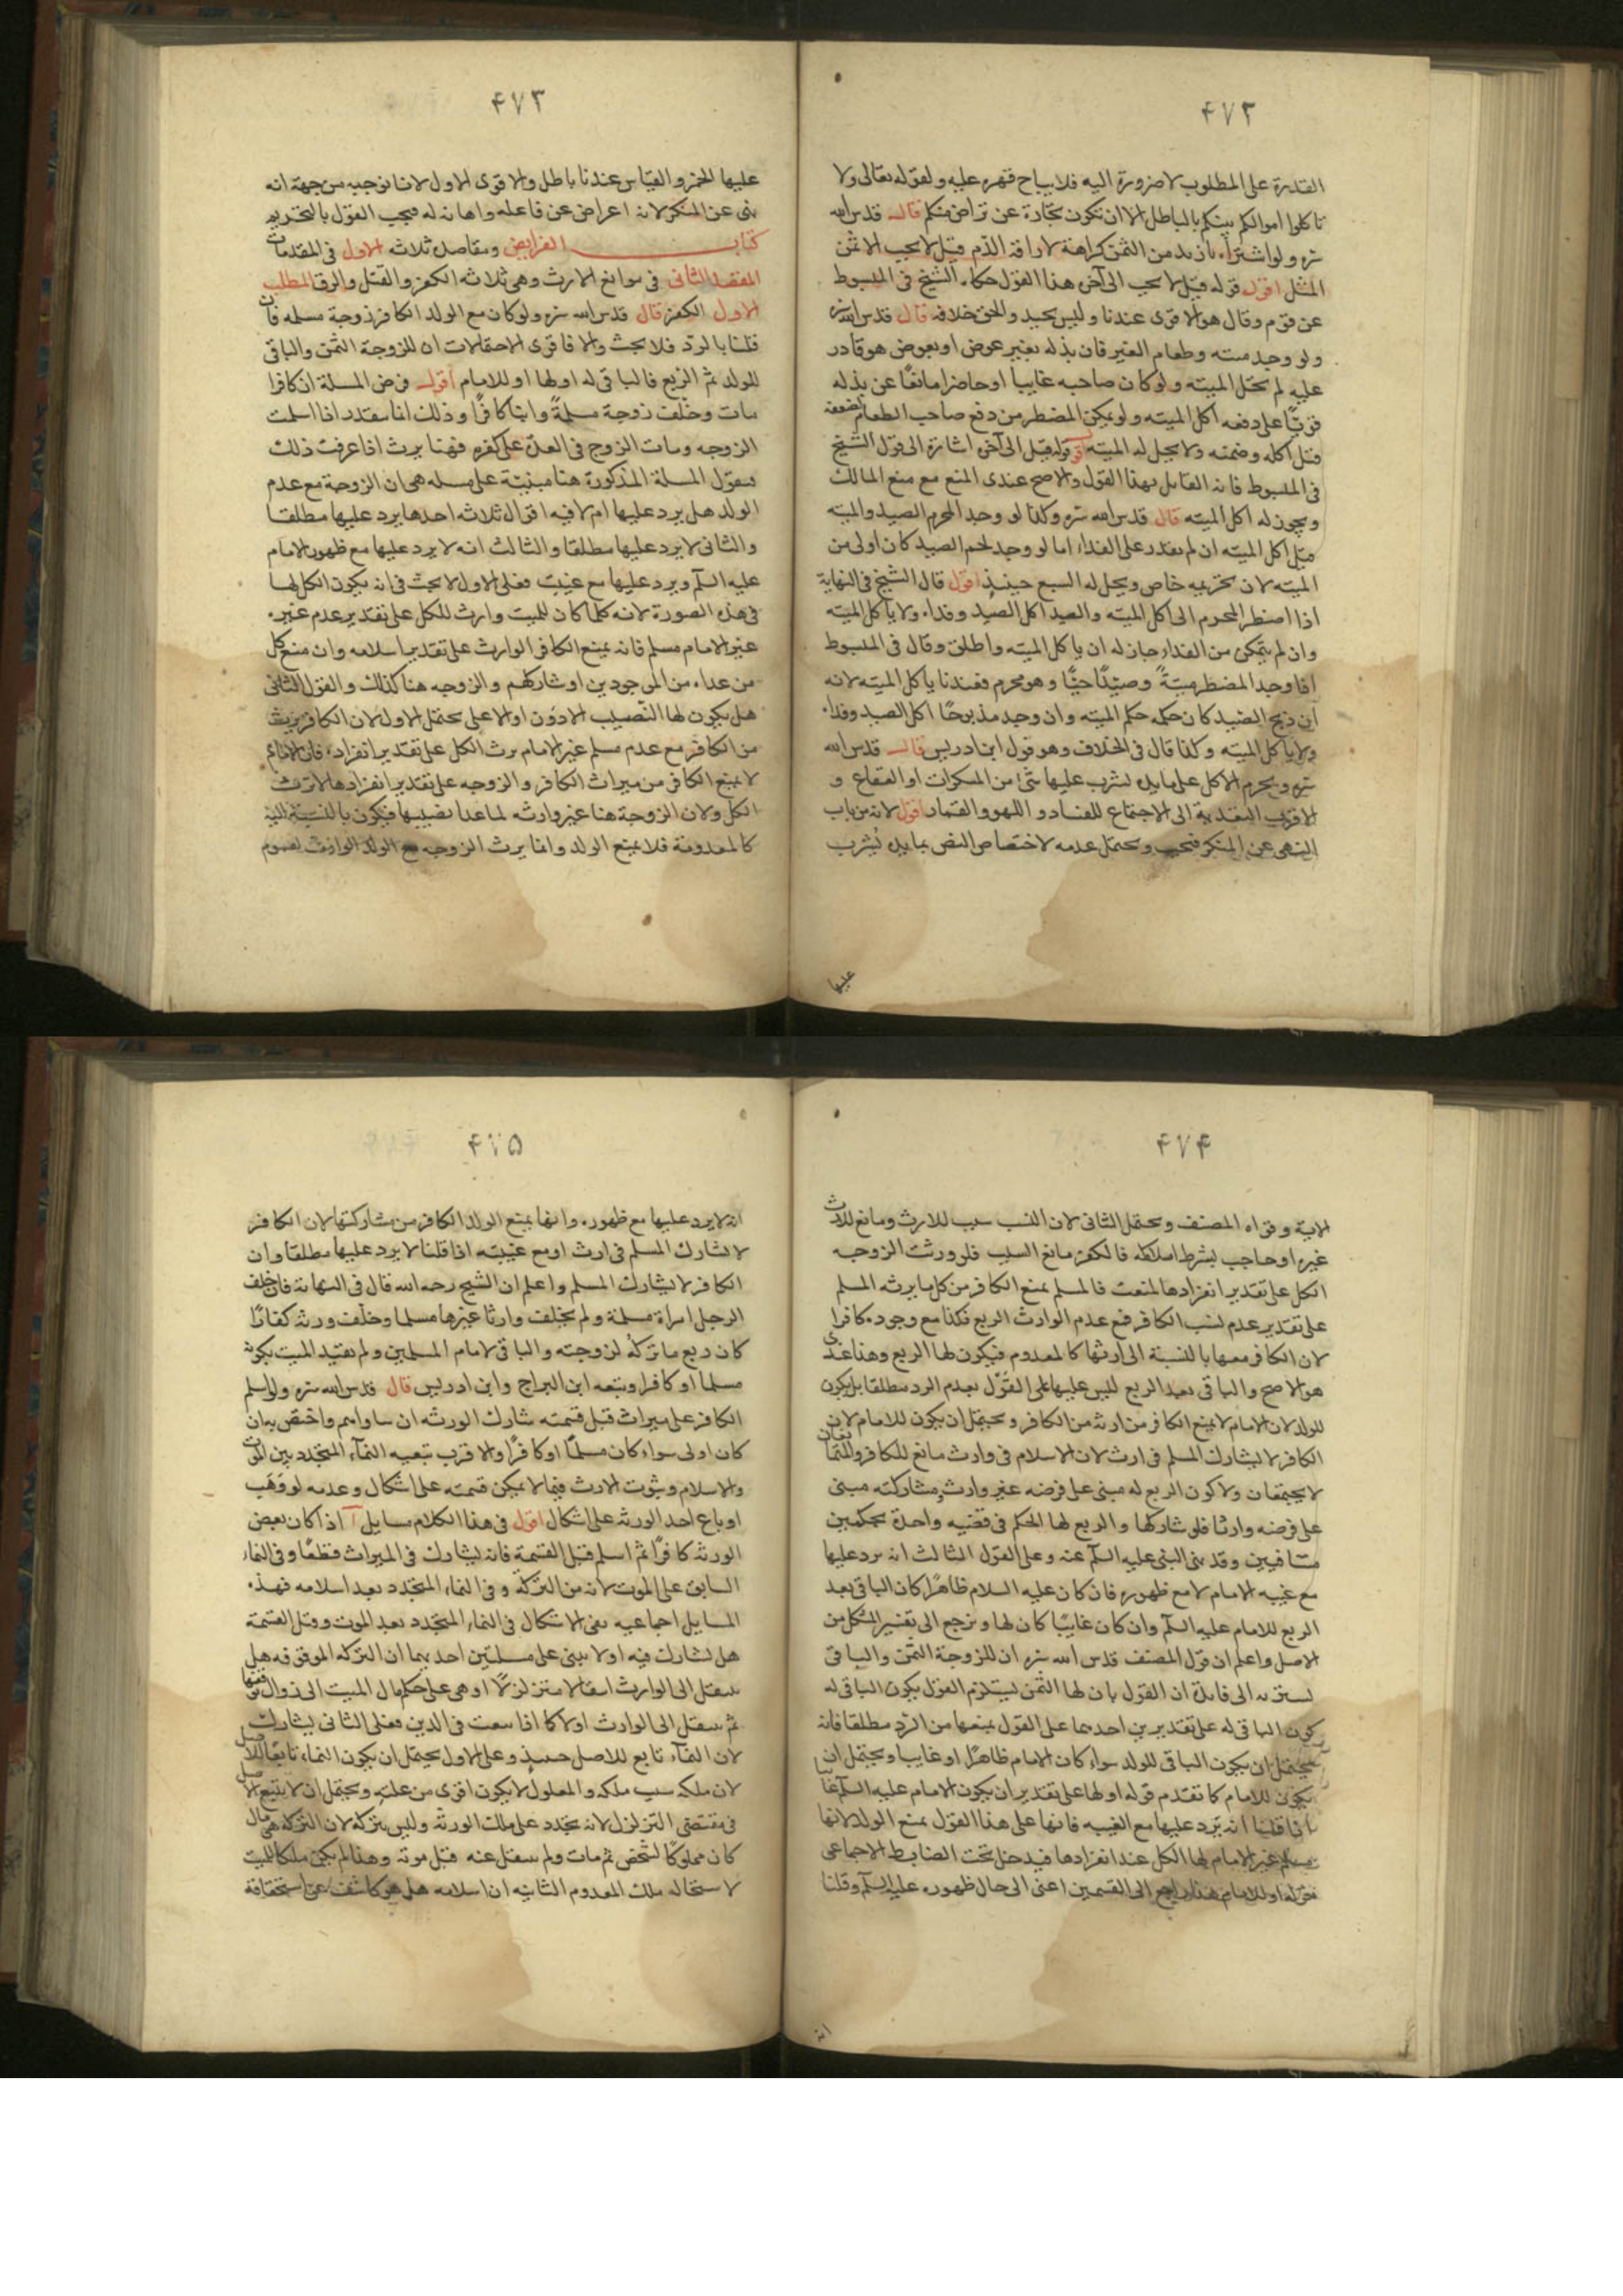 ۴۷۲
القدرة على المطلوب لا ضرورة اليه فلا يباح قهره عليه ولقوله تعالى ولا
تاكلوا اموالكم بينكم بالباطل الا ان تكون تجارة عن تراض منكم قال قدس الله
سره ولو اشتراه بازيد من الثمن كراهة لاراقة الدم قيل لا يجب الا ثمن
المثل اقول قوله قيل لا يجب الى آخر هذا القول حكاه الشيخ فى المبسوط
عن قوم وقال هو الاقوى عندنا وليس بجيد والحق خلافه قال قدس الله سره
ولو وجد ميته وطعام الغير فان بذله بغير عوض او بعوض هو قادر
عليه لم تحل الميته ولو كان صاحبه غايبا او حاضرا مانعا عن بذله
قويّا على دفعه اكل الميته ولو يمكن المضطر من دفع صاحب الطعام لضعفه
قيل اكله وضمنه ولا يحل له الميته قوله قيل الى آخر اشارة الى قول الشيخ
فى المبسوط فانه القايل بهذا القول والاصح عندى المنع مع منع المالك
ويجوز له اكل الميته قال قدس الله سره وكذا لو وجد المحرم الصيد والميته
قيل اكل الميته ان لم يقدر على الفداء اما لو وجد لحم الصيد كان اولى من
الميته لان تحريمه خاص ويحل له السبع حينئذ اقول قال الشيخ فى النهاية
اذا اضطر المحرم الى اكل الميته والصيد اكل الصيد وفداه ولا ياكل الميته
وان لم يتمكن من الفداء جاز له ان ياكل الميته واطلق وقال فى المبسوط
اذا وجد المضطر ميتةً وصيدًا حيّا وهو محرم فعندنا ياكل الميته لانه
ان ذبح الصيد كان حكمه حكم الميته وان وجد مذبوحًا اكل الصيد وفداه
ولا ياكل الميته وكذا قال فى الخلاف وهو قول ابن ادريس قال قدس الله
سره ويحرم الاكل على مايدة يشرب عليها شئ من المسكرات او الفقاع و
الاقرب التعدية الى الاجتماع للفساد و اللهو والقمار اقول لانه من باب
النهى عن المنكر فيجب ويحتمل عدمه لاختصاص النص بمايدة يُشرب
عليها
۴۷۳
عليها الخمر والقياس عندنا باطل والاقوى الاول لانا نوجبه من جهة انه
نهى عن المنكر لانه اعراض عن فاعله واهانه له فيجب القول بالتحريم
كتاب الفرايض ومقاصده ثلاثه الاول فى المقدمات
المقصد الثانى فى موانع الارث وهى ثلاثه الكفر والقتل والرق المطلب
الاول الكفر قال قدس الله سره ولو كان مع الولد الكافر زوجة مسلمه فان
قلنا بالرد فلا بحث والا فاقوى الاحتمالات ان للزوجة الثمن والباقى
للولد ثم الربع فالباقى له او لها او للامام اقول فرض المسلة ان كافرا
مات وخلّف زوجة مسلمةً وابنا كافرًا وذلك انما يتقدر اذا اسلمت
الزوجه ومات الزوج فى العدة على كفره فهنا يرث اذا عرفت ذلك
فنقول المسلة المذكورة هنا مبنيّة على مسله هى ان الزوجة مع عدم
الولد هل يرد عليها ام لا فيه اقوال ثلاثه احدها يرد عليها مطلقا
والثانى لا يرد عليها مطلقا والثالث انه لا يرد عليها مع ظهور الامام
عليه السلم ويرد عليها مع غيبته فعلى الاول لا بحث فى انه يكون الكل لها
فى هذه الصورة لانه كلما كان للميت وارث للكل على تقدير عدم غيره
غير الامام مسلم فانه يمنع الكافر الوارث على تقدير اسلامه وان منع كل
من عداه من الموجودين او شاركهم والزوجه هنا كذلك والقول الثانى
هل يكون لها النصيب الادون او الاعلى يحتمل الاول لان الكافر يرث
من الكافر مع عدم مسلم غير الامام يرث الكل على تقدير انفراده فان الامام
لا يمنع الكافر من ميراث الكافر والزوجه على تقدير انفرادها لا ترث
الكل ولان الزوجة هنا غير وارثه لما عدا نصيبها فيكون بالنسبة اليه
كالمعدومة فلا يمنع الولد وانما يرث الزوجه مع الولد الوارث لعموم
۴۷۴
الاية وقواه المصنف ويحتمل الثانى لان النسب سبب للارث ومانع للارث
غيره او حاجب بشرط اسلامه فالكفر مانع السبب فلو ورثت الزوجه
الكل على تقدير انفرادها لمنعت فالمسلم يمنع الكافر من كل ما يرثه المسلم
على تقدير عدم نسب الكافر فمع عدم الوارث الربع فكذا مع وجوده كافرا
لان الكافر معها بالنسبة الى ارثها كالمعدوم فيكون لها الربع وهذا عندى
هو الاصح والباقى بعد الربع ليس عليها على القول بعدم الرد مطلقا بل يكون
للولد لان الامام لا يمنع الكافر من ارثه من الكافر ويحتمل ان يكون للامام لان
الكافر لا يشارك المسلم فى ارث لان الاسلام فى وارث مانع للكافر والمتنافيان
لا يجتمعان ولا كون الربع له مبنى على فرضه غير وارث ومشاركته مبنى
على فرضه وارثا فلو شاركها والربع لها الحكم فى قضيه واحدة بحكمين
متنافيين وقد نهى النبى عليه السلم عنه وعلى القول الثالث انه يرد عليها
مع غيبه الامام لا مع ظهوره فان كان عليه السلام ظاهرًا كان الباقى بعد
الربع للامام عليه السلم وان كان غايبًا كان لها ويرجع الى تفسير المشكل من
الاصل واعلم ان قول المصنف قدس الله سره ان للزوجة الثمن والباقى
يستند به الى فايدة ان القول بان لها الثمن يستلزم القول بكون الباقى له
كون الباقى له على تقديرين احدهما على القول بمنعها من الرد مطلقا فانه
يحتمل ان يكون الباقى للولد سواء كان الامام ظاهرًا او غايبا ويحتمل ان
يكون للامام كما تقدم قوله او لها على تقدير ان يكون الامام عليه السلم غايبا
اذا قلنا انه يرد عليها مع الغيبه فانها على هذا القول يمنع الولد لانها
مسلم غير الامام لها الكل عند انفرادها فيدخل تحت الضابط الاجماعى
قوله او للامام هذا راجع الى القسمين اعنى الى حال ظهوره عليه السلم وقلنا
انه
۴۷۵
انه لا يرد عليها مع ظهوره وانها يمنع الولد الكافر من مشاركتها لان الكافر
لا يشارك المسلم فى ارث او مع غيبته اذا قلنا لا يرد عليها مطلقا وان
الكافر لا يشارك المسلم واعلم ان الشيخ رحمه الله قال فى النهاية فان خلف
الرجل امراة مسلمة ولم يخلف وارثا غيرها مسلما وخلّف ورثة كفارًا
كان ربع ما تركه لزوجته والباقى لامام المسلمين ولم يقيد الميت بكونه
مسلما او كافرا وتبعه ابن البراج وابن ادريس قال قدس الله سره ولو اسلم
الكافر على ميراث قبل قسمته شارك الورثه ان ساواهم واختص به ان
كان اولى سواء كان مسلمًا او كافرًا والاقرب تبعيه النمآء المتجدد بين الموت
والاسلام وثبوت الارث فيما لا يمكن قسمته على اشكال وعدمه لو وَهَب
او باع احد الورثه على اشكال اقول فى هذا الكلام مسايل آ اذا كان بعض
الورثه كافرًا ثم اسلم قبل القسمة فانه يشارك فى الميراث قطعًا وفى النماء
السابق على الموت لانه من التركة وفى النماء المتجدد بعد اسلامه فهذه
المسايل اجماعيه بقى الاشكال فى النماء المتجدد بعد الموت وقبل القسمة
هل يشارك فيه او لا يبنى على مسلتين احديهما ان التركه الموقوفه هل
ينتقل الى الوارث انتقالا متزلزلًا او هى على حكم مال الميت الى زوال توقفها
ثم ينتقل الى الوارث اولا كما اذا بيعت فى الدين فعلى الثانى يشارك
لان النمآء تابع للاصل حينئذ وعلى الاول يحتمل ان يكون النماء تابعًا للاصل
لان ملكه سبب ملكه والمعلول لا يكون اقوى من علته ويحتمل ان لا يتبع الاصل
فى مقتضى التزلزل لانه تجدد على ملك الورثه وليس بتركه لان التركه هى مال
كان مملوكًا لشخص ثم مات ولم ينتقل عنه قبل موته وهذا لم يكن ملكا للميت
لاستحاله ملك المعدوم الثانيه ان اسلامه هل هو كاشف عن استحقاقه